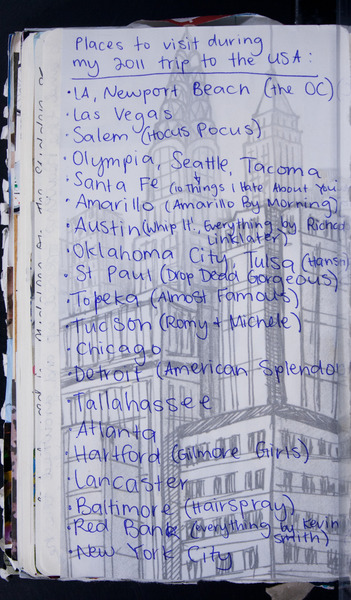 Places to visit during
my 2011 trip to the USA:
• LA, Newport Beach (the OC)
• Las Vegas
• Salem (Hocus Pocus)
• Olympia, Seattle, Tacoma
• Santa Fe (10 Things I Hate About You
• Amarillo (Amarillo By Morning)
• Austin (Whip It!, Everything by Richard
Linklater)
• Oklahoma City, Tulsa (Hanson)
• St Paul (Drop Dead Gorgeous)
• Topeka (Almost Famous)
• Tucson (Romy + Michele)
• Chicago
• Detroit (American Splendor
• Tallahassee
• Atlanta
• Hartford (Gilmore Girls)
• Lancaster
• Baltimore (Hairspray)
• Red Bank (everything by Kevin
Smith)
• New York City